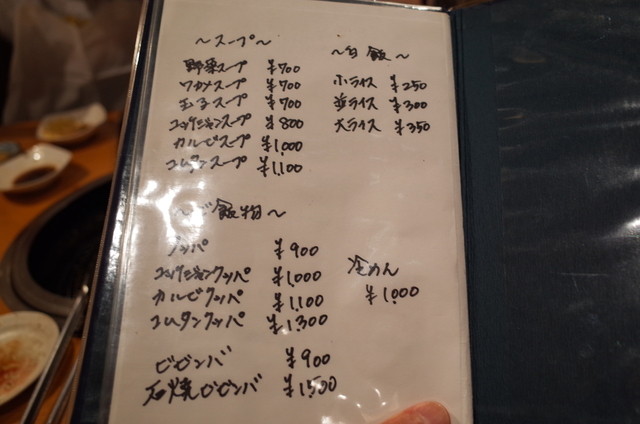 ～スープ～
野菜スープ ¥700
ワカメスープ ¥700
玉子スープ ¥700
コムゲジャンスープ ¥800
カルビスープ ¥1,000
コムタンスープ ¥1,100
～ご飯物～
クッパ ¥900
¥1,000
カルビクッパ ¥1,100
コムタンクッパ ¥1,300
ビビンバ ¥900
石焼ビビンバ ¥1,500
～白飯～
小ライス ¥250
並ライス ¥300
大ライス ¥350
冷めん
¥1,000